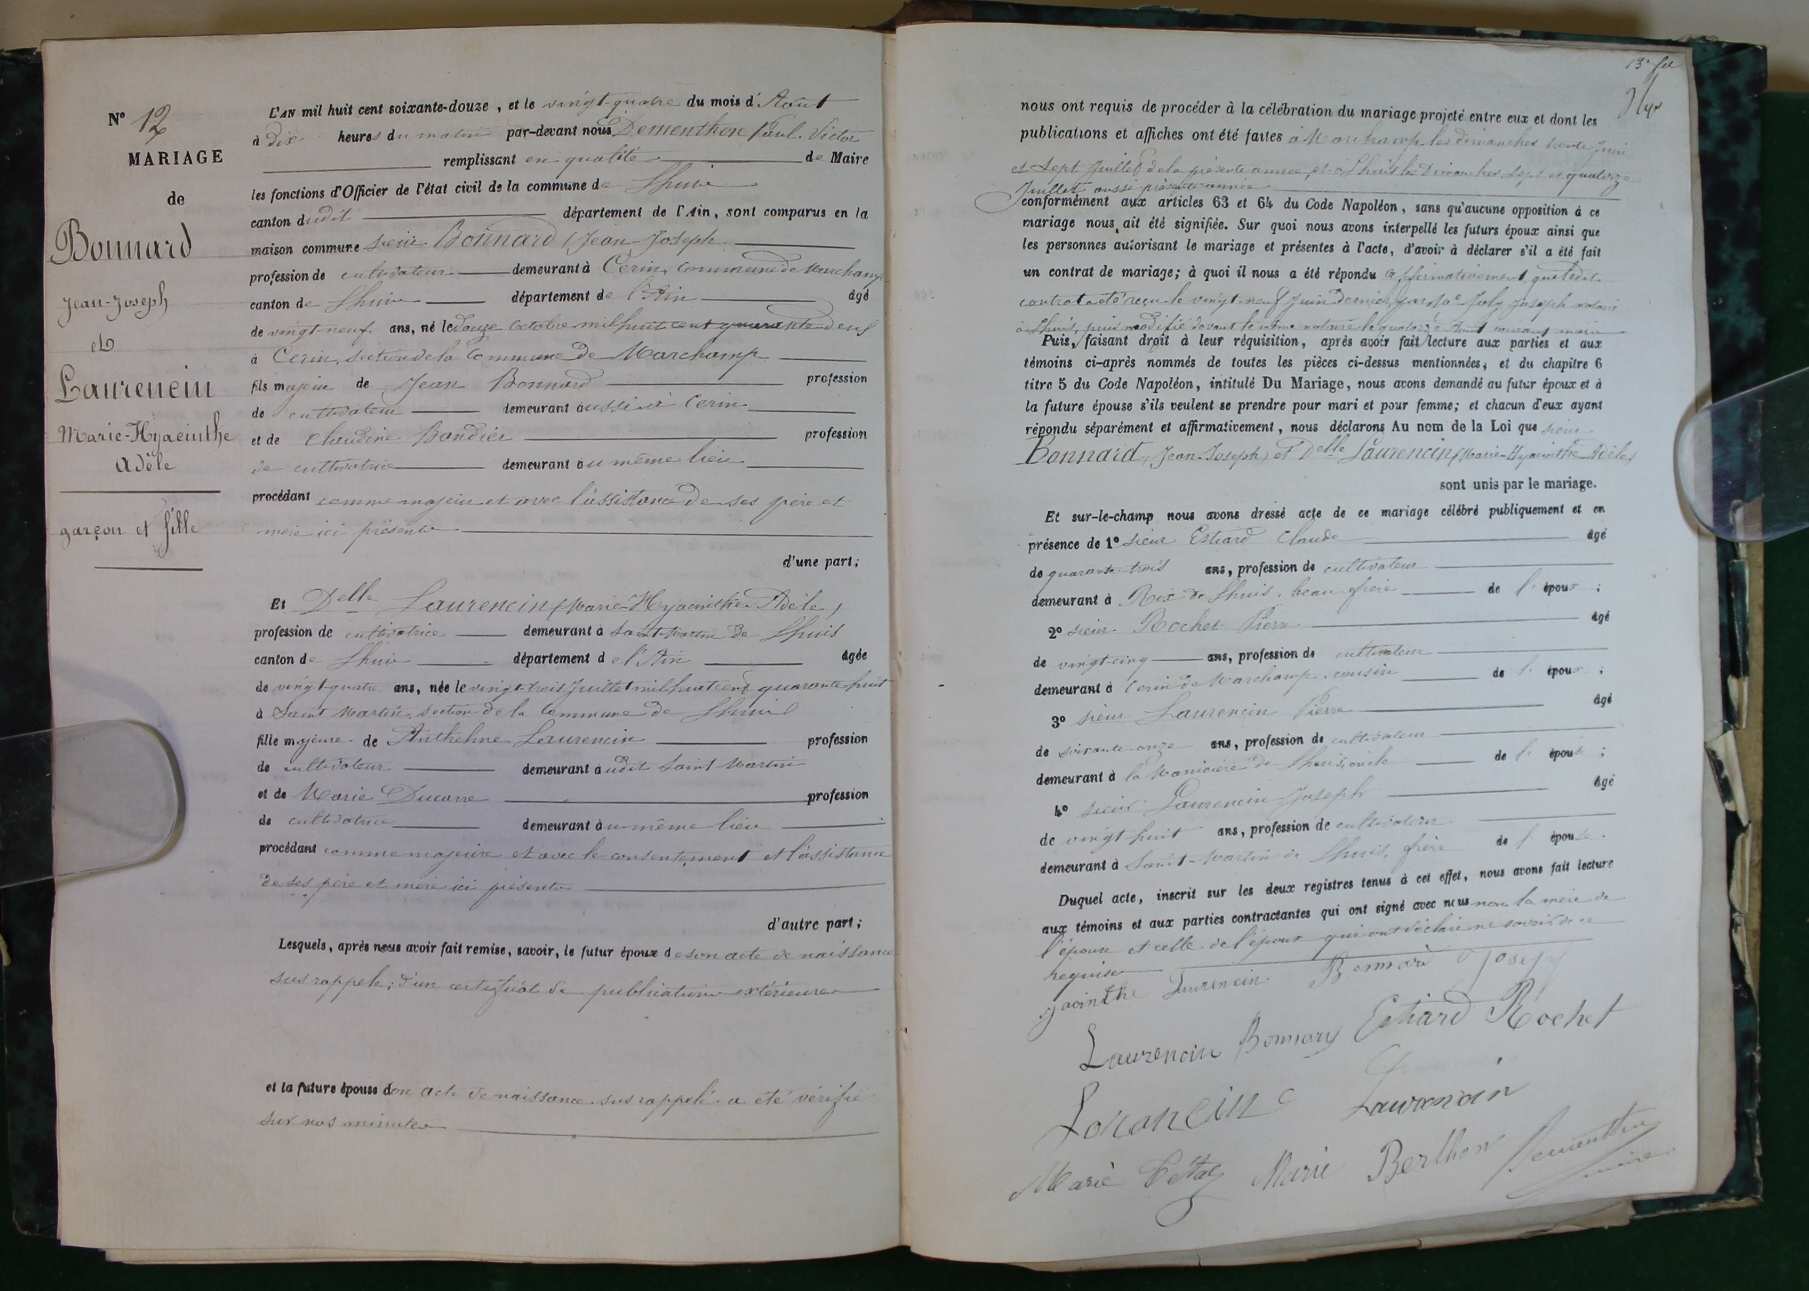 N° 12
MARIAGE
de
Bonnard
Jean-Joseph
et
Laurencin
Marie-Hyacinthe
Adèle
garçon et fille
L'AN mil huit cent soixante-douze, et le vingt-quatre du mois d'Août
à dix heures du matin par-devant nous Dementhon Paul-Victor
remplissant en qualité de Maire
les fonctions d'Officier de l'état civil de la commune de Lhuis
canton dudit département de l'Ain, sont comparus en la
maison commune sieur Bonnard (Jean Joseph
profession de cultivateur demeurant à Cerin, commune de Marchamp
canton de Lhuis département de l'Ain âgé
de vingt-neuf ans, né le douze octobre mil huit cent quarante deux
à Cerin, section de la commune de Marchamp
fils majeur de Jean Bonnard profession
de cultivateur demeurant aussi à Cerin
et de Claudine Bandier profession
de cultivatrice demeurant au même lieu
procédant comme majeur et avec l'assistance de ses père et
mère ici présents
d'une part;
Et Delle Laurencin (Marie-Hyacinthe-Adèle)
profession de cultivatrice demeurant à Saint-Martin de Lhuis
canton de Lhuis département de l'Ain âgée
de vingt-quatre ans, née le vingt-trois Juillet mil huit cent quarante-huit
à Saint Martin, section de la commune de Lhuis
fille majeure de Anthelme Laurencin profession
de cultivateur demeurant audit Saint Martin
et de Marie Ducarre profession
de cultivatrice demeurant au même lieu
procédant comme majeure et avec le consentement et l'assistance
de ses père et mère ici présents
d'autre part;
Lesquels, après nous avoir fait remise, savoir, le futur époux de son acte de naissance
sus rappelé; d'un certificat de publications extérieures
et la future épouse don acte de naissance sus rappelé a été vérifié
sur nos minutes
13e
nous ont requis de procéder à la célébration du mariage projeté entre eux et dont les
publications et affiches ont été faites à Marchamp les dimanches trente Juin
et sept Juillet de la présente année, et à Lhuis les Dimanches sept et quatorze
Juillet aussi présente année
conformément aux articles 63 et 64 du Code Napoléon, sans qu'aucune opposition à ce
mariage nous ait été signifiée. Sur quoi nous avons interpellé les futurs époux ainsi que
les personnes autorisant le mariage et présentes à l'acte, d'avoir à déclarer s'il a été fait
un contrat de mariage; à quoi il nous a été répondu affirmativement, que ledit
contrat a été reçu le vingt-neuf Juin dernier, par Me Joly Joseph notaire
à Lhuis, puis modifié devant le même notaire le quatorze Août courant mois
Puis, faisant droit à leur réquisition, après avoir fait lecture aux parties et aux
témoins ci-après nommés de toutes les pièces ci-dessus mentionnées, et du chapitre 6
titre 5 du Code Napoléon, intitulé Du Mariage, nous avons demandé au futur époux et à
la future épouse s'ils veulent se prendre pour mari et pour femme; et chacun d'eux ayant
répondu séparément et affirmativement, nous déclarons Au nom de la Loi que sieur
Bonnard (Jean-Joseph) et Delle Laurencin (Marie-Hyacinthe Adèle)
sont unis par le mariage.
Et sur-le-champ nous avons dressé acte de ce mariage célébré publiquement et en
présence de 1° sieur Estiard Claude âgé
de quarante-trois ans, profession de cultivateur
demeurant à de Lhuis, beau frère de l'époux;
2° sieur Rochet Pierre âgé
de vingt-cinq ans, profession de cultivateur
demeurant à Cerin de Marchamp, cousin de l'époux;
3° sieur Laurencin Pierre âgé
de soixante-onze ans, profession de cultivateur
demeurant à la de Lhuis, oncle de l'épouse;
4° sieur Laurencin Joseph âgé
de vingt huit ans, profession de cultivateur
demeurant à Saint-Martin de Lhuis, frère de l'épouse.
Duquel acte, inscrit sur les deux registres tenus à cet effet, nous avons fait lecture
aux témoins et aux parties contractantes qui ont signé avec nous non la mère de
l'épouse et celle de l'époux qui ont déclaré ne savoir de ce
requises
yacinthe Laurencin Bonnard Joseph
Laurencin Bonnard Estiard Rochet
Lorancin Laurencin
Marie Marie Berthon Dementhon
maire